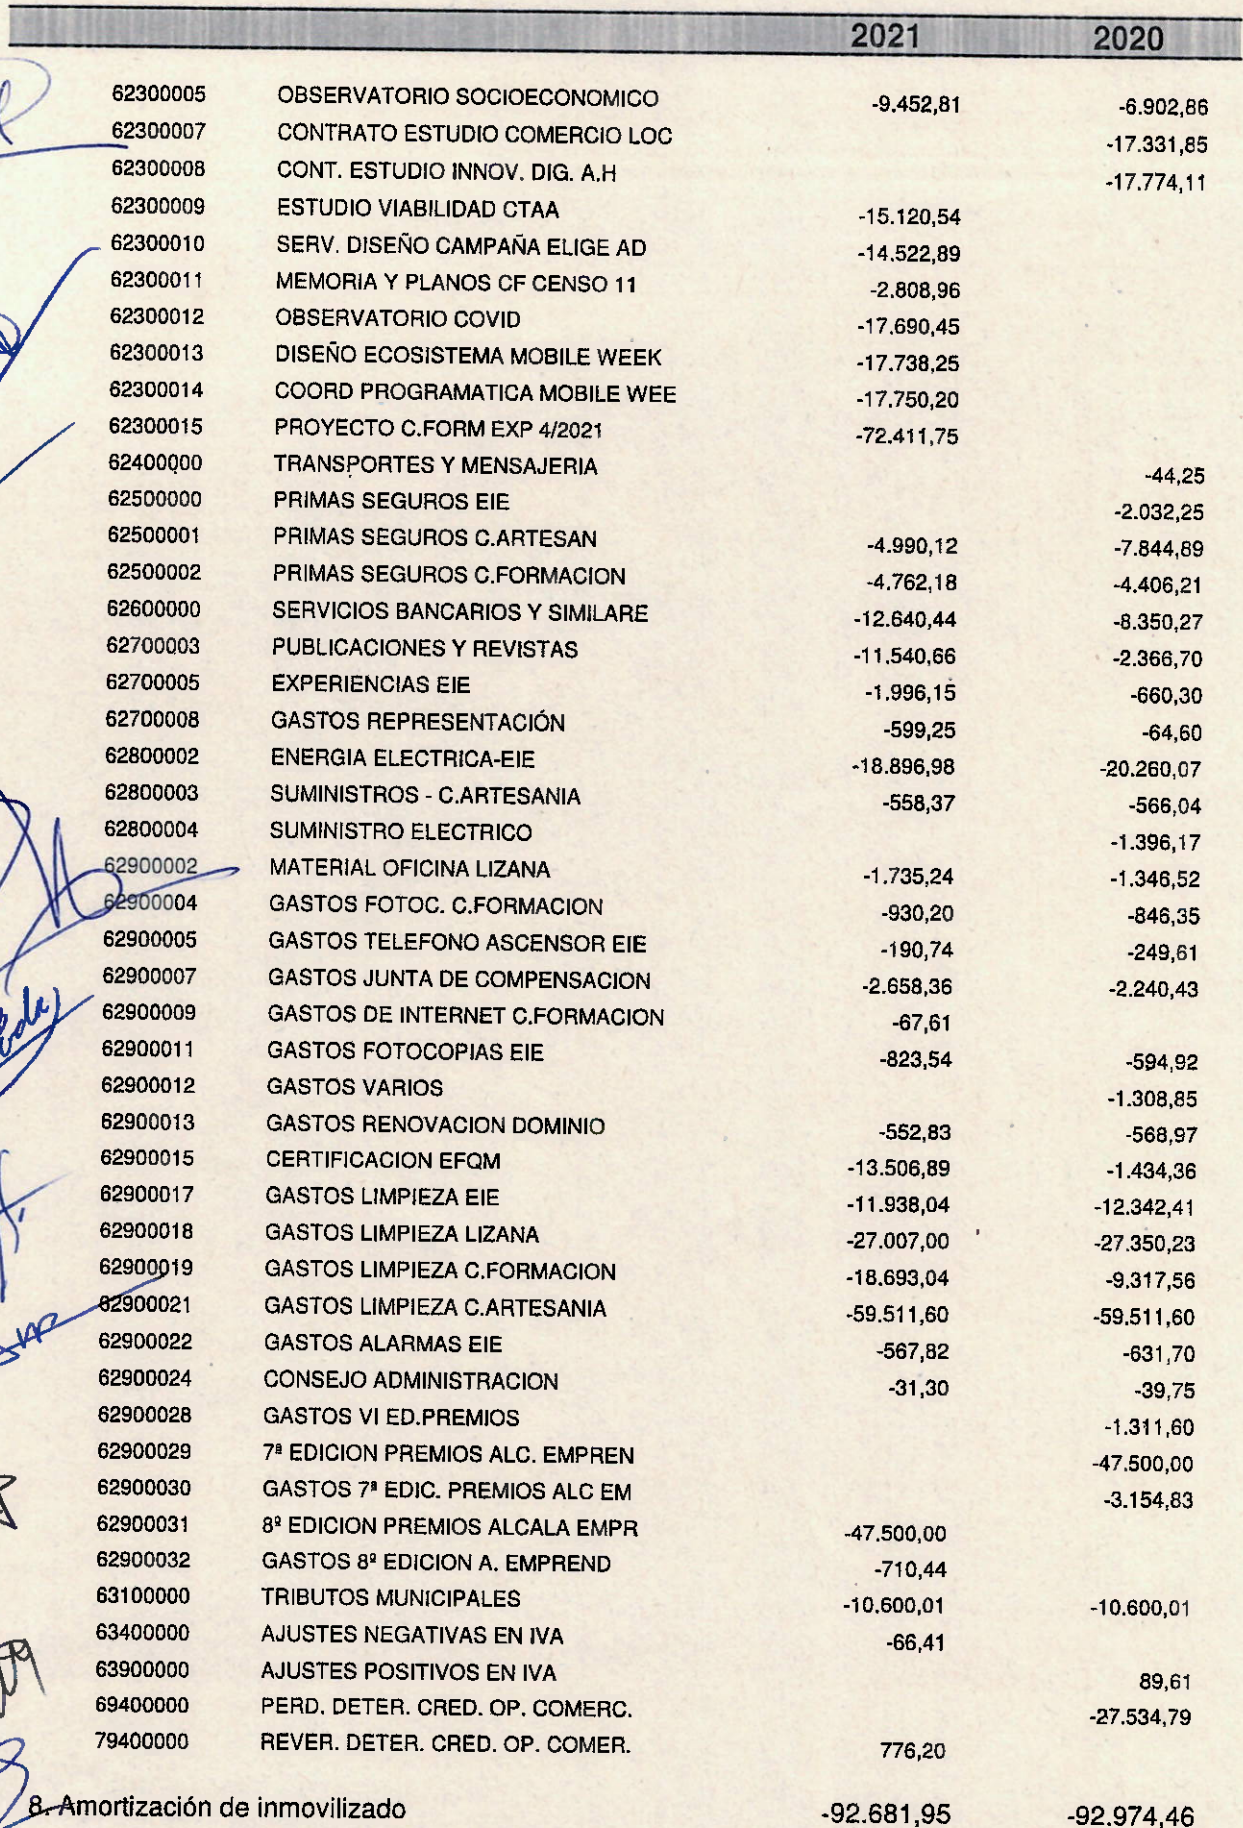 2021 2020
62300005 OBSERVATORIO SOCIOECONOMICO -9.452,81 -6.902,86
62300007 CONTRATO ESTUDIO COMERCIO LOC -17.331,85
62300008 CONT. ESTUDIO INNOV. DIG. A.H -17.774,11
62300009 ESTUDIO VIABILIDAD CTAA -15.120,54
62300010 SERV. DISEÑO CAMPAÑA ELIGE AD -14.522,89
62300011 MEMORIA Y PLANOS CF CENSO 11 -2.808,96
62300012 OBSERVATORIO COVID -17.690,45
62300013 DISEÑO ECOSISTEMA MOBILE WEEK -17.738,25
62300014 COORD PROGRAMATICA MOBILE WEE -17.750,20
62300015 PROYECTO C.FORM EXP 4/2021 -72.411,75
62400000 TRANSPORTES Y MENSAJERIA -44,25
62500000 PRIMAS SEGUROS EIE -2.032,25
62500001 PRIMAS SEGUROS C.ARTESAN -4.990,12 -7.844,89
62500002 PRIMAS SEGUROS C.FORMACION -4.762,18 -4.406,21
62600000 SERVICIOS BANCARIOS Y SIMILARE -12.640,44 -8.350,27
62700003 PUBLICACIONES Y REVISTAS -11.540,66 -2.366,70
62700005 EXPERIENCIAS EIE -1.996,15 -660,30
62700008 GASTOS REPRESENTACIÓN -599,25 -64,60
62800002 ENERGIA ELECTRICA-EIE -18.896,98 -20.260,07
62800003 SUMINISTROS - C.ARTESANIA -558,37 -566,04
62800004 SUMINISTRO ELECTRICO -1.396,17
62900002 MATERIAL OFICINA LIZANA -1.735,24 -1.346,52
62900004 GASTOS FOTOC. C.FORMACION -930,20 -846,35
62900005 GASTOS TELEFONO ASCENSOR EIE -190,74 -249,61
62900007 GASTOS JUNTA DE COMPENSACION -2.658,36 -2.240,43
62900009 GASTOS DE INTERNET C.FORMACION -67,61
62900011 GASTOS FOTOCOPIAS EIE -823,54 -594,92
62900012 GASTOS VARIOS -1.308,85
62900013 GASTOS RENOVACION DOMINIO -552,83 -568,97
62900015 CERTIFICACION EFQM -13.506,89 -1.434,36
62900017 GASTOS LIMPIEZA EIE -11.938,04 -12.342,41
62900018 GASTOS LIMPIEZA LIZANA -27.007,00 -27.350,23
62900019 GASTOS LIMPIEZA C.FORMACION -18.693,04 -9.317,56
62900021 GASTOS LIMPIEZA C.ARTESANIA -59.511,60 -59.511,60
62900022 GASTOS ALARMAS EIE -567,82 -631,70
62900024 CONSEJO ADMINISTRACION -31,30 -39,75
62900028 GASTOS VI ED.PREMIOS -1.311,60
62900029 7ª EDICION PREMIOS ALC. EMPREN -47.500,00
62900030 GASTOS 7ª EDIC. PREMIOS ALC EM -3.154,83
62900031 8º EDICION PREMIOS ALCALA EMPR -47.500,00
62900032 GASTOS 8º EDICION A. EMPREND -710,44
63100000 TRIBUTOS MUNICIPALES -10.600,01 -10.600,01
63400000 AJUSTES NEGATIVAS EN IVA -66,41
63900000 AJUSTES POSITIVOS EN IVA 89,61
69400000 PERD. DETER. CRED. OP. COMERC. -27.534,79
79400000 REVER. DETER. CRED. OP. COMER. 776,20
8. Amortización de inmovilizado -92.681,95 -92.974,46